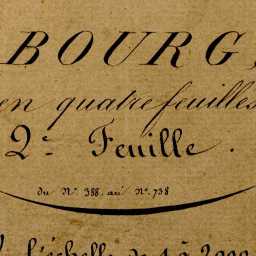 BOURG,
en quatre feuilles
2e Feuille.
du No. 388. au No. 738
l'échelle de 1 à 2000